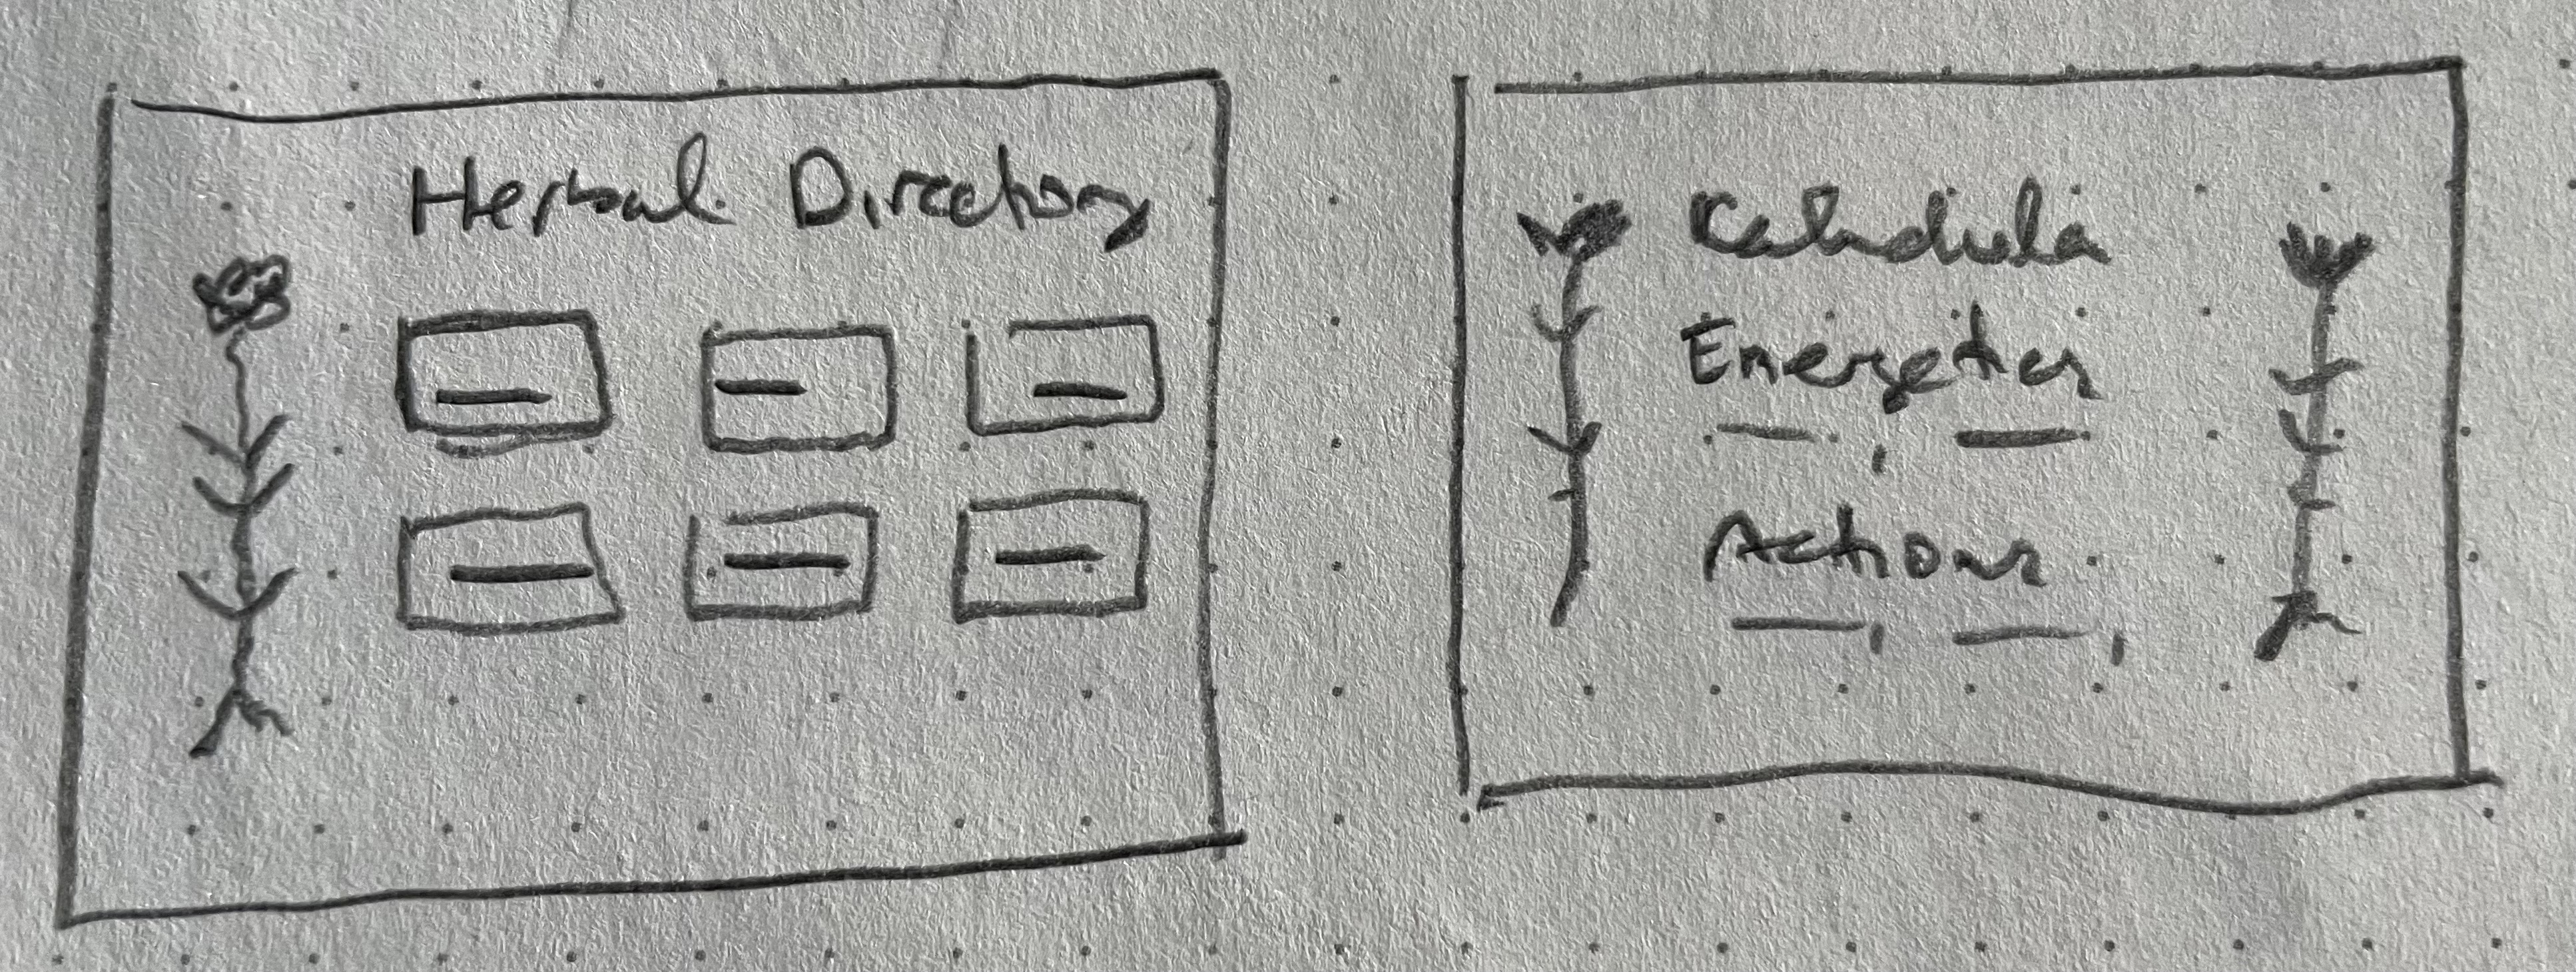 Herbal Directory
Kalendula
Energetics
Actions